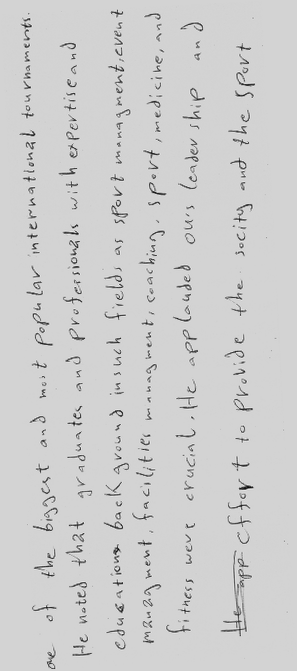 one of the biggest and most popular international tournaments.
He noted that graduates and professionals with expertise and
educations back ground in such fields as sport managment, event
managment, facilities managment, coaching, sport, medicine, and
fitness were crucial. He applauded our's leadership and
He app effort to provide the socity and the sport